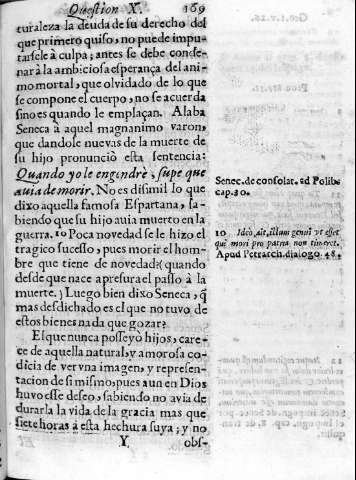 Question X. 169
turaleza la deuda de su derecho del
que primero quiso, no puede impu-
tarsele à culpa; antes se debe conde-
nar à la ambiciosa esperança del ani-
mo mortal, que olvidado de lo que
se compone el cuerpo, no se acuerda
sino es quando le emplaçan. Alaba
Seneca à aquel magnanimo varon,
que dandole nuevas de la muerte de
su hijo pronunciò esta sentencia:
Quando yo le engindre, supe que
auia de morir. No es disimil lo que
dixo aquella famosa Espartana, sa-
biendo que su hijo auia muerto en la
guerra. 10 Poca novedad se le hizo el
tragico sucesso, pues morir el hom-
bre que tiene de novedad? (quando
desde que nace apresura el passo à la
muerte.) Luego bien dixo Seneca, q̃
mas desdichado es el que no tuvo de
estos bienes nada que gozar?
El que nunca posseyò hijos, care-
ce de aquella natural, y amorosa co-
dicia de ver vna imagen, y represen-
tacion de si mismo; pues aun en Dios
huvo esse deseo, sabiendo no avia de
durarla la vida de la gracia mas que
siete horas à esta hechura suya; y no
Y obs-
Senec. de consolat. ad Polib.
cap. 30.
10 Ideò, ait, illum genui vt esset
qui mori pro patria non timeret.
Apud Petrarch. dialogo 48.